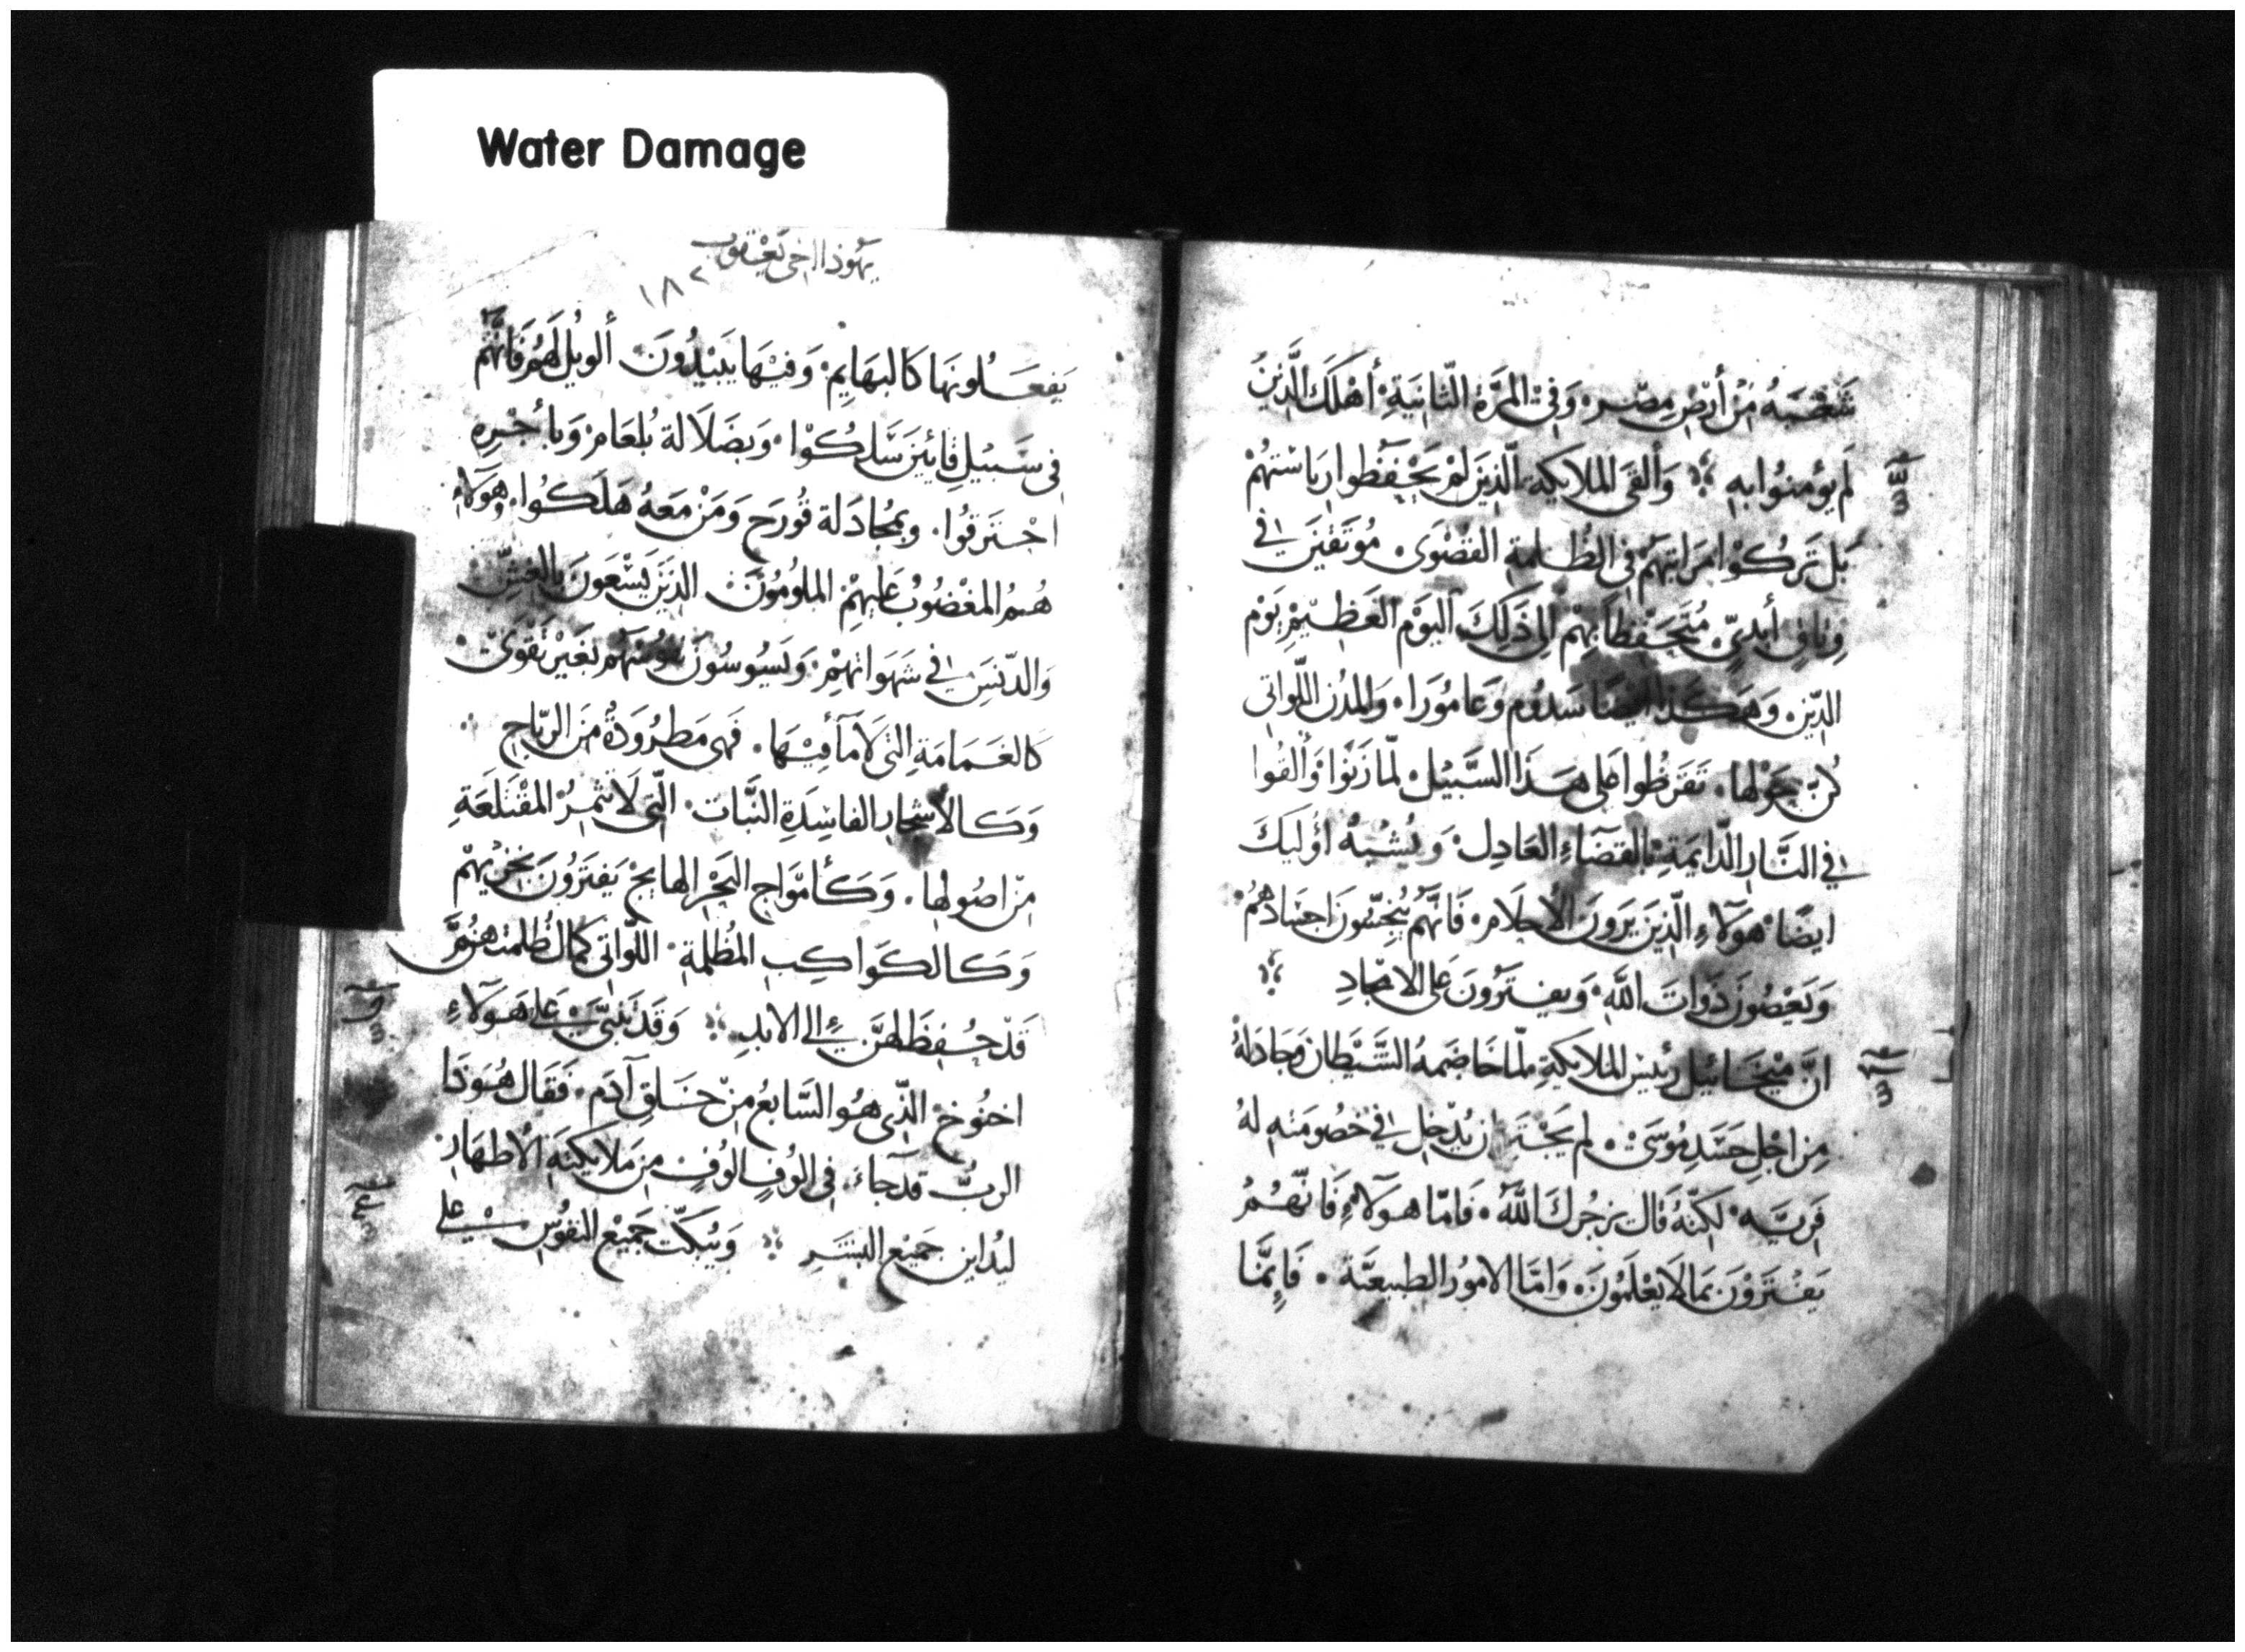 Water Damage
شعبه من أرض مصر. وفي المرة الثانية أهلك الذين
لم يؤمنوا به وألقى الملايكة الذين لم يحفظوا رياستهم
بل تركوا مراتبهم في الظلمة القصوى. موثقين في
وثاق أبدي متحفظا بهم الي ذلك اليوم العظيم يوم
الدين. وهكذا ايضا سدوم وعامورا. والمدن اللواتي
كن حولها. تفرطوا على هذا السبيل. لما زنوا وألقوا
في النار الدايمة بالقضاء العادل. ويشبه اوليك
ايضا هولاء الذين يرون الاحلام. فانهم ينجسون اجسادهم
ويعصون ذوات الله. ويفترون على الامجاد
ان ميخاييل رئيس الملايكة لما خاصمه الشيطان وجادله
من اجل جسد موسى. لم يجتر ان يدخل في خصومته له
فريه. لكنه قال يزجرك الله. فاما هولاء فانهم
يفترون بما لا يعلمون. واما الامور الطبيعية. فإنما
يهوذا اخي يعقوب
١٨٢
يفعلونها كالبهايم. وفيها يبيدون. ألويل لهم فانهم
في سبيل قايين سلكوا. وبضلالة بلعام وبأجره
احترقوا. وبمجادلة قورح ومن معه هلكوا. وهولاء
هم المغضوب عليهم الملومون الذين يسعون بالغش
والدنس في شهواتهم. ويسوسون نفوسهم بغير تقوى
كالغمامة التي لا مآ فيها. فهي مطرودة من الرياح
وكالأشجار الفاسدة النبات. التي لا تثمر المقتلعة
من اصولها. وكأمواج البحر الهايج يفترون بخزيهم
وكالكواكب المظلمة. اللواتي كمال ظلمتهن
قد حفظ لهن الي الابد وقد تنبى على هولاء
اخنوخ الذي هو السابع من خلق آدم. فقال هوذا
الرب قد جاء. في الوف الوف من ملايكته الاطهار
ليداين جميع البشر ويبكت جميع النفوس على